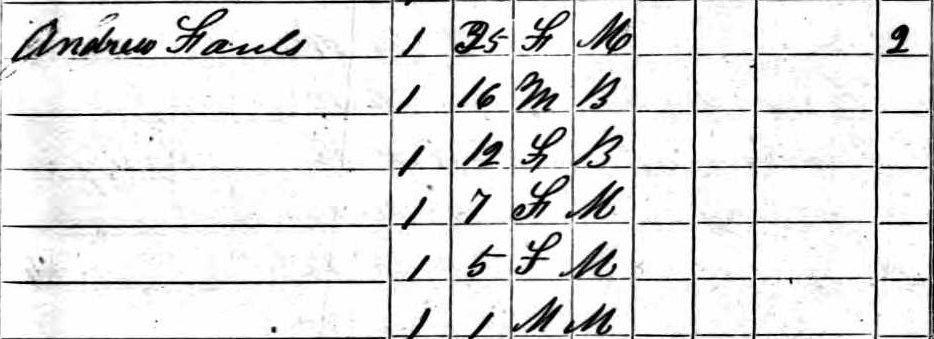 Andrew Fauls 1 35 F M 2
1 16 M B
1 12 F B
1 7 F M
1 5 F M
1 1 M M